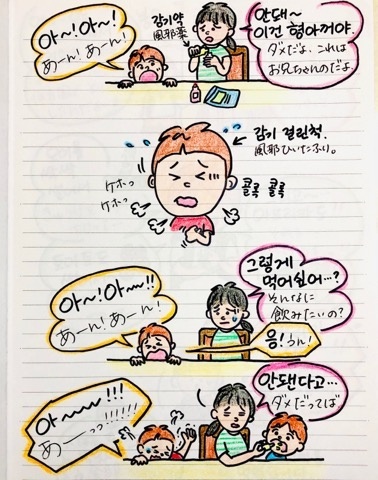 아~! 아~!
あーん! あーん!
감기약
風邪薬
안돼~
이건 형아꺼야.
ダメだよ、これは
お兄ちゃんのだよ。
감기 걸린척.
風邪ひいたふり。
ケホっ
ケホっ
콜록 콜록
아~! 아~!!
あーん! あーん!
그렇게
먹어싶어…?
そんなに
飲みたいの?
응! うん!
아~~!!!
あーーっっ!!!!!!
안됀다고…
ダメだってば